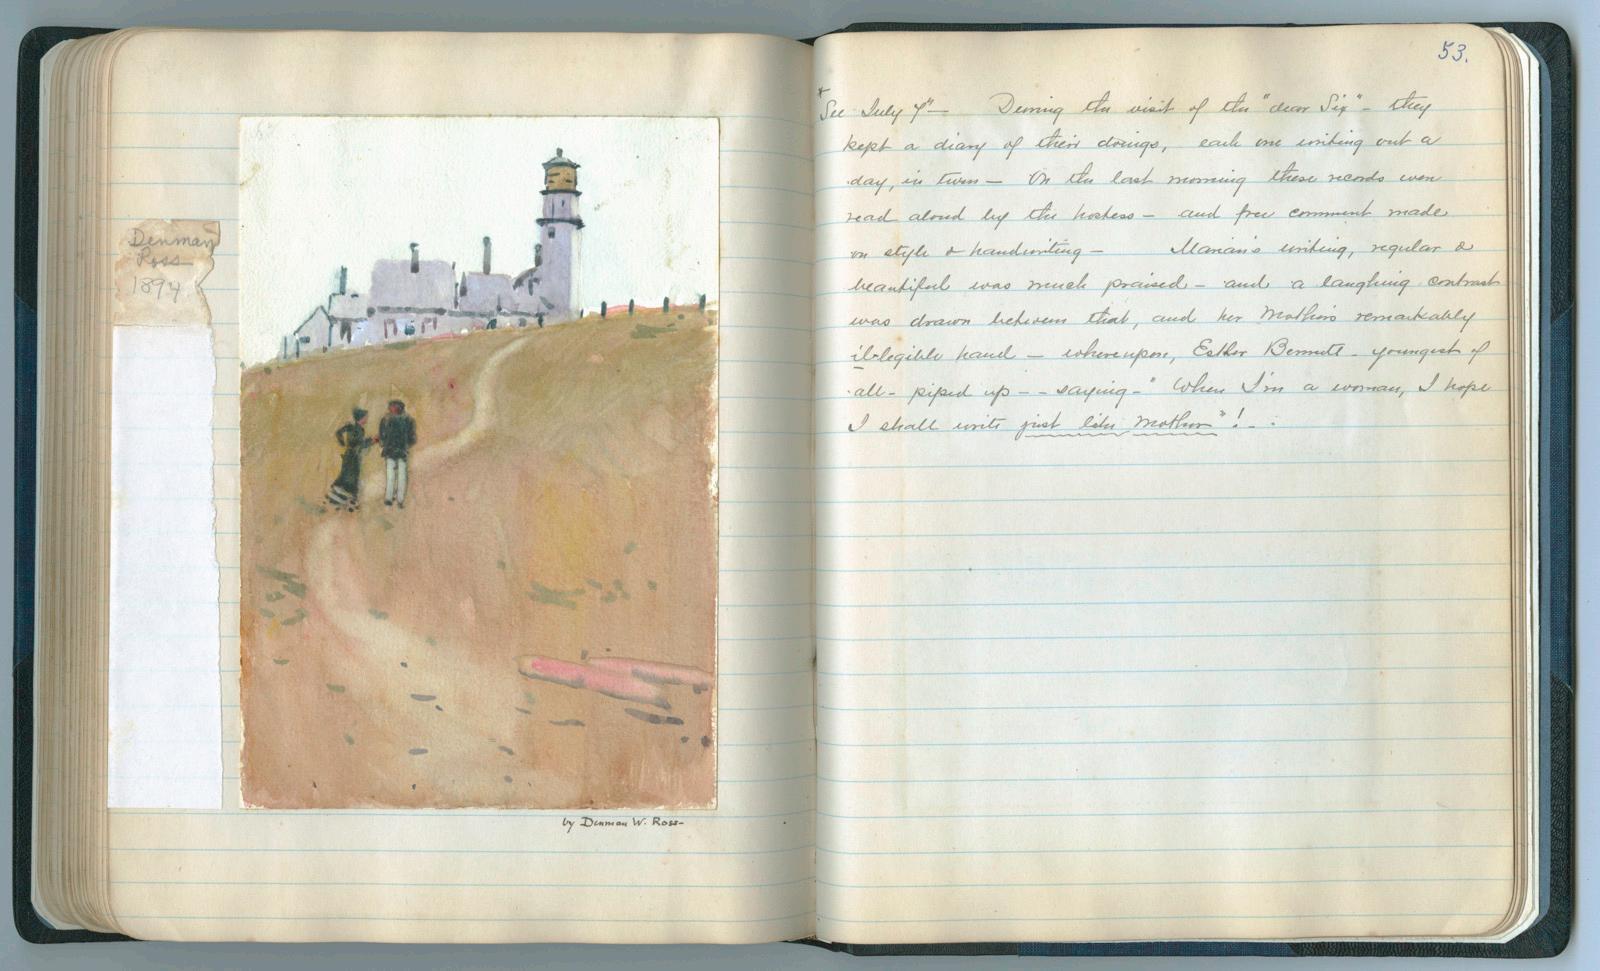 Denman
Ross
1894
by Denman W. Ross-
53.
"See July 7" — During the visit of the "dear Six" - they
kept a diary of their doings, each one writing out a
day, in turn — On the last morning these records were
read aloud by the hostess — and free comment made
on style & handwriting — Marian's writing, regular &
beautiful was much praised - and a laughing contrast
was drawn between that, and her Mother's remarkably
illegible hand — whereupon, Esther Bennett - youngest of
all - piped up - - saying - "When I'm a woman, I hope
I shall write just like Mother"! - .